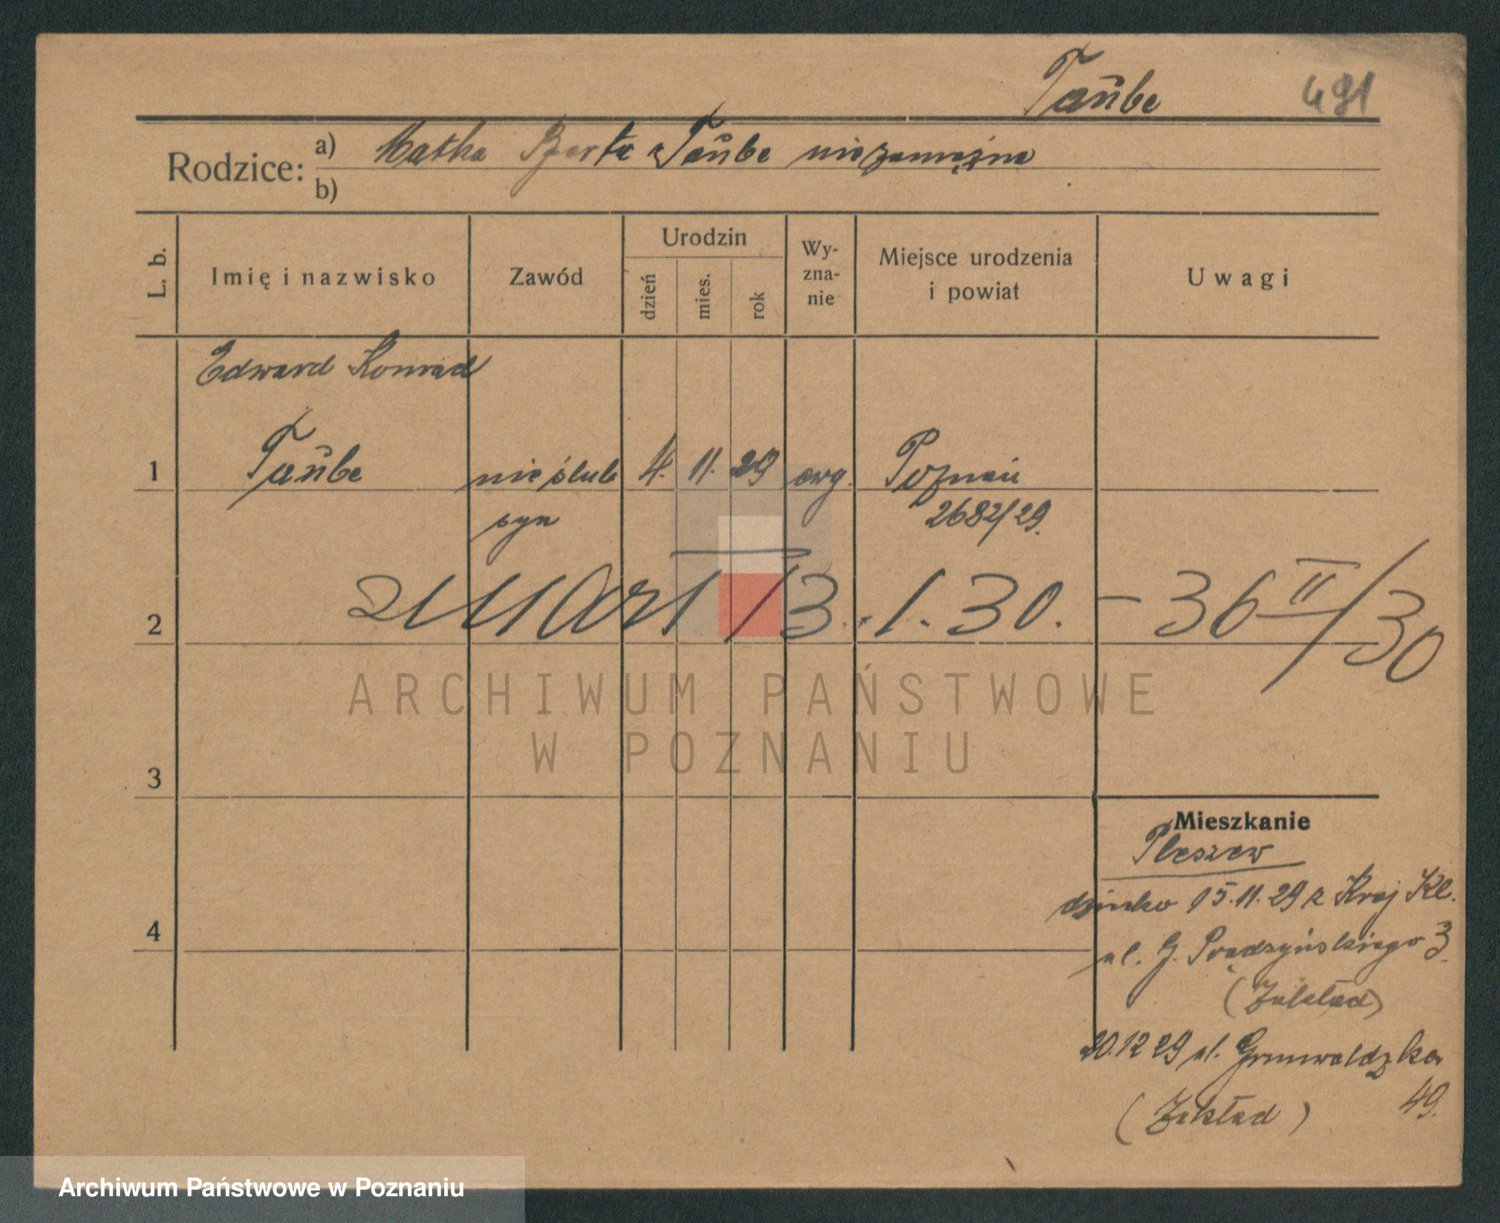 Taŭbe 491
Rodzice: a) Matka Berta Taŭbe niezamężna
b)
L. b. Imię i nazwisko Zawód Urodzin dzień mies. rok Wy-zna-nie Miejsce urodzenia i powiat Uwagi
Edward Konrad
1 Taŭbe nieślub 4. 11. 29 ewg. Poznań
syn 2682/29.
2 zmarł 3.1.30. – 36 II/30
ARCHIWUM PAŃSTWOWE
W POZNANIU
3
Mieszkanie
Pleszew
4 15.11.29 z Kraj Kl.
ul. G. Prądzyńskiego 3
(Zakład)
20.12 29 ul. Grunwaldzka
49.
(Zakład)
Archiwum Państwowe w Poznaniu